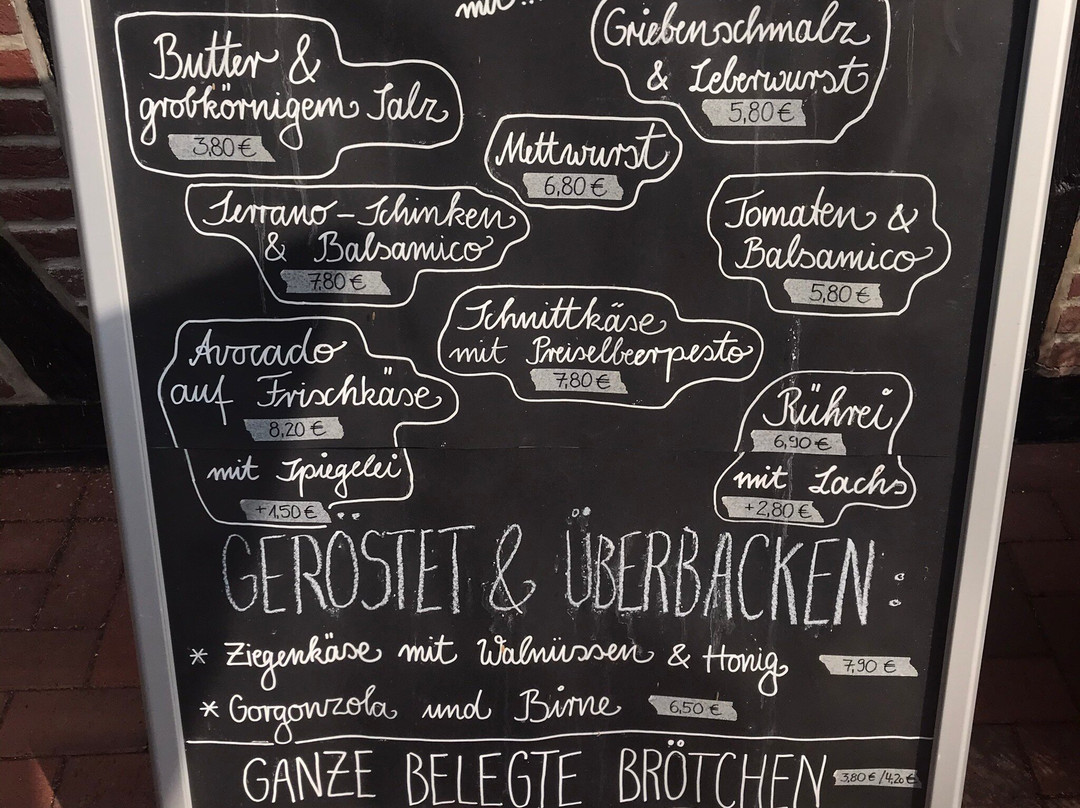 mit...
Butter &
grobkörnigem Salz
3,80 €
Griebenschmalz
& Leberwurst
5,80 €
Mettwurst
6,80 €
Serrano-Schinken
& Balsamico
7,80 €
Tomaten &
Balsamico
5,80 €
Schnittkäse
mit Preiselbeerpesto
7,80 €
Avocado
auf Frischkäse
8,20 €
mit Spiegelei
+1,50 €
Rührei
6,90 €
mit Lachs
+2,80 €
GERÖSTET & ÜBERBACKEN:
* Ziegenkäse mit Walnüssen & Honig 7,90 €
* Gorgonzola und Birne 6,50 €
GANZE BELEGTE BRÖTCHEN 3,80 € / 4,20 €